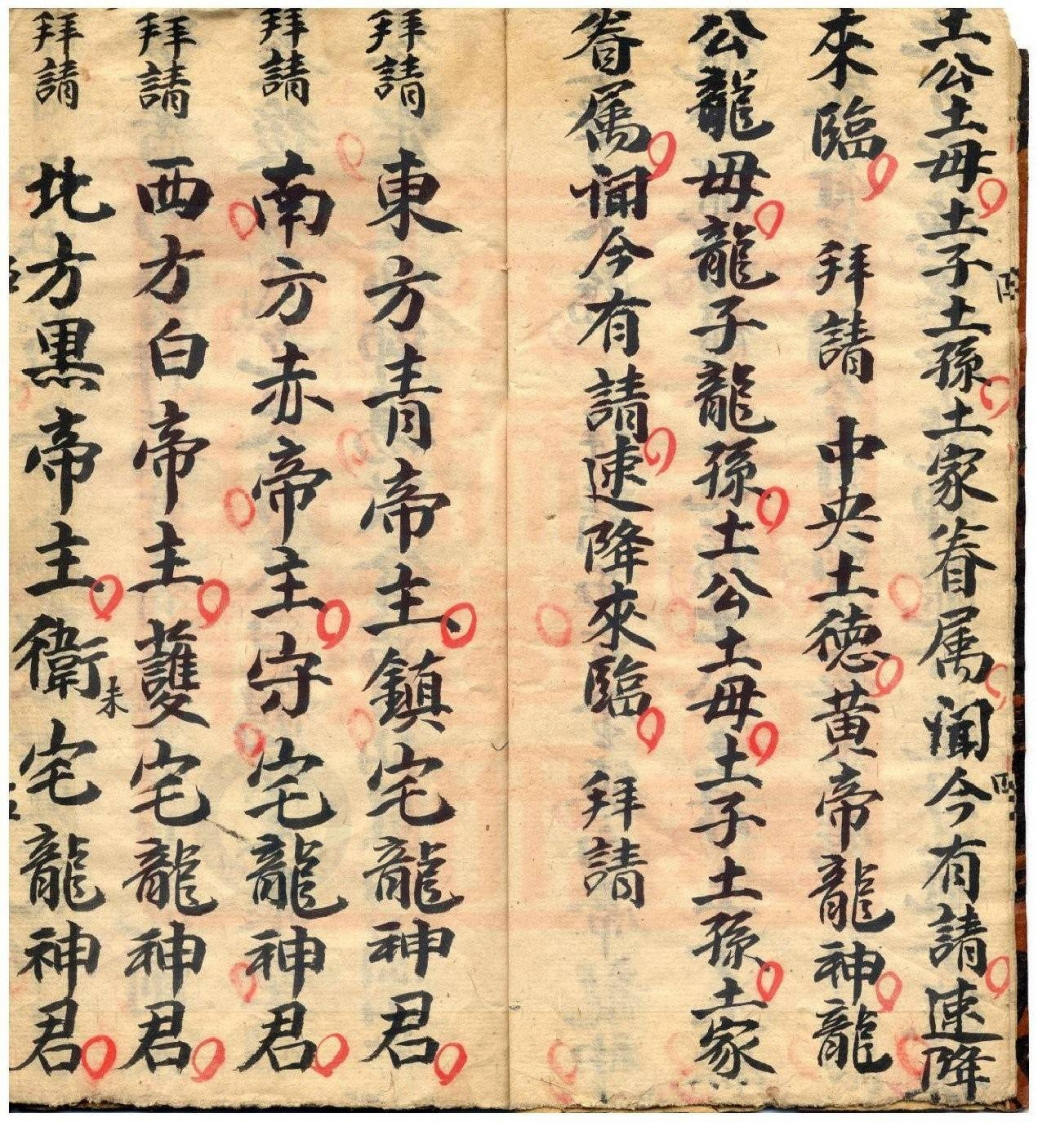 土公土母土子土孫土家眷属闻今有請速降
來臨 拜請 中央土德黃帝龍神龍
公龍母龍子龍孫土公土母土子土孫土家
眷属闻今有請速降來臨 拜請
東方青帝主鎮宅龍神君
拜請 南方赤帝主守宅龍神君
拜請 西方白帝主護宅龍神君
拜請 北方黑帝主衛宅龍神君
拜請